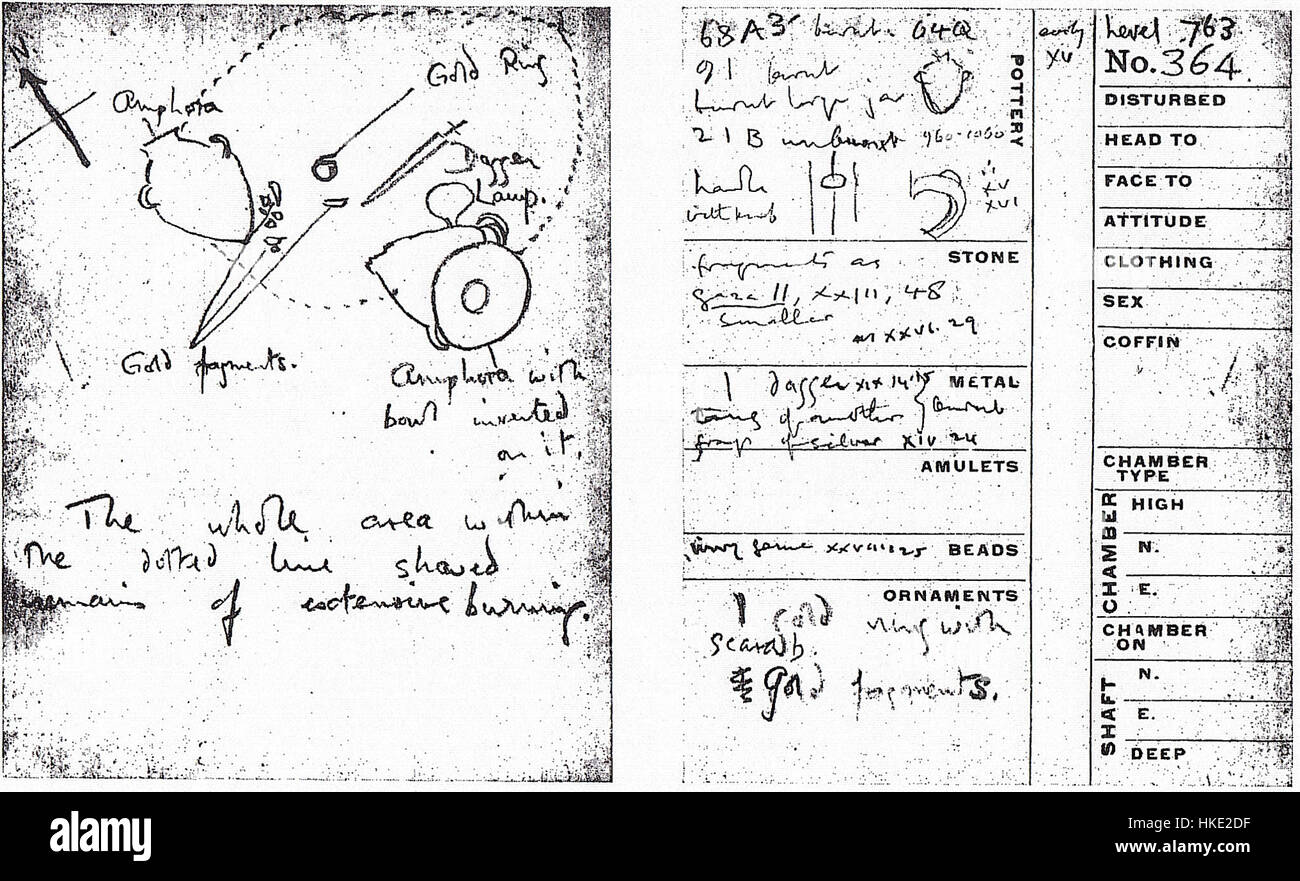 N.
Gold Ring
Amphora
Dagger
Lamp.
Gold fragments.
Amphora with
bowl inverted
on it.
The whole area within
the dotted line showed
remains of extensive burning.
68A3 burnt 64Q
91 burnt
burnt large jar
21B unburnt 960-1060
handle
with knob
XV
XVI
POTTERY
early
XV
fragments as
STONE
gaza II, XXIII, 48
smaller
on XXVI. 29
1 dagger XIX 14.15
METAL
tang of another
burnt
frag of silver XIV 24
AMULETS
BEADS
ORNAMENTS
1 gold ring with
scarab.
gold fragments.
Level 763
No. 364
DISTURBED
HEAD TO
FACE TO
ATTITUDE
CLOTHING
SEX
COFFIN
CHAMBER
TYPE
CHAMBER
HIGH
N.
E.
CHAMBER
ON
SHAFT
N.
E.
DEEP
alamy
Image ID: HKE2DF
www.alamy.com